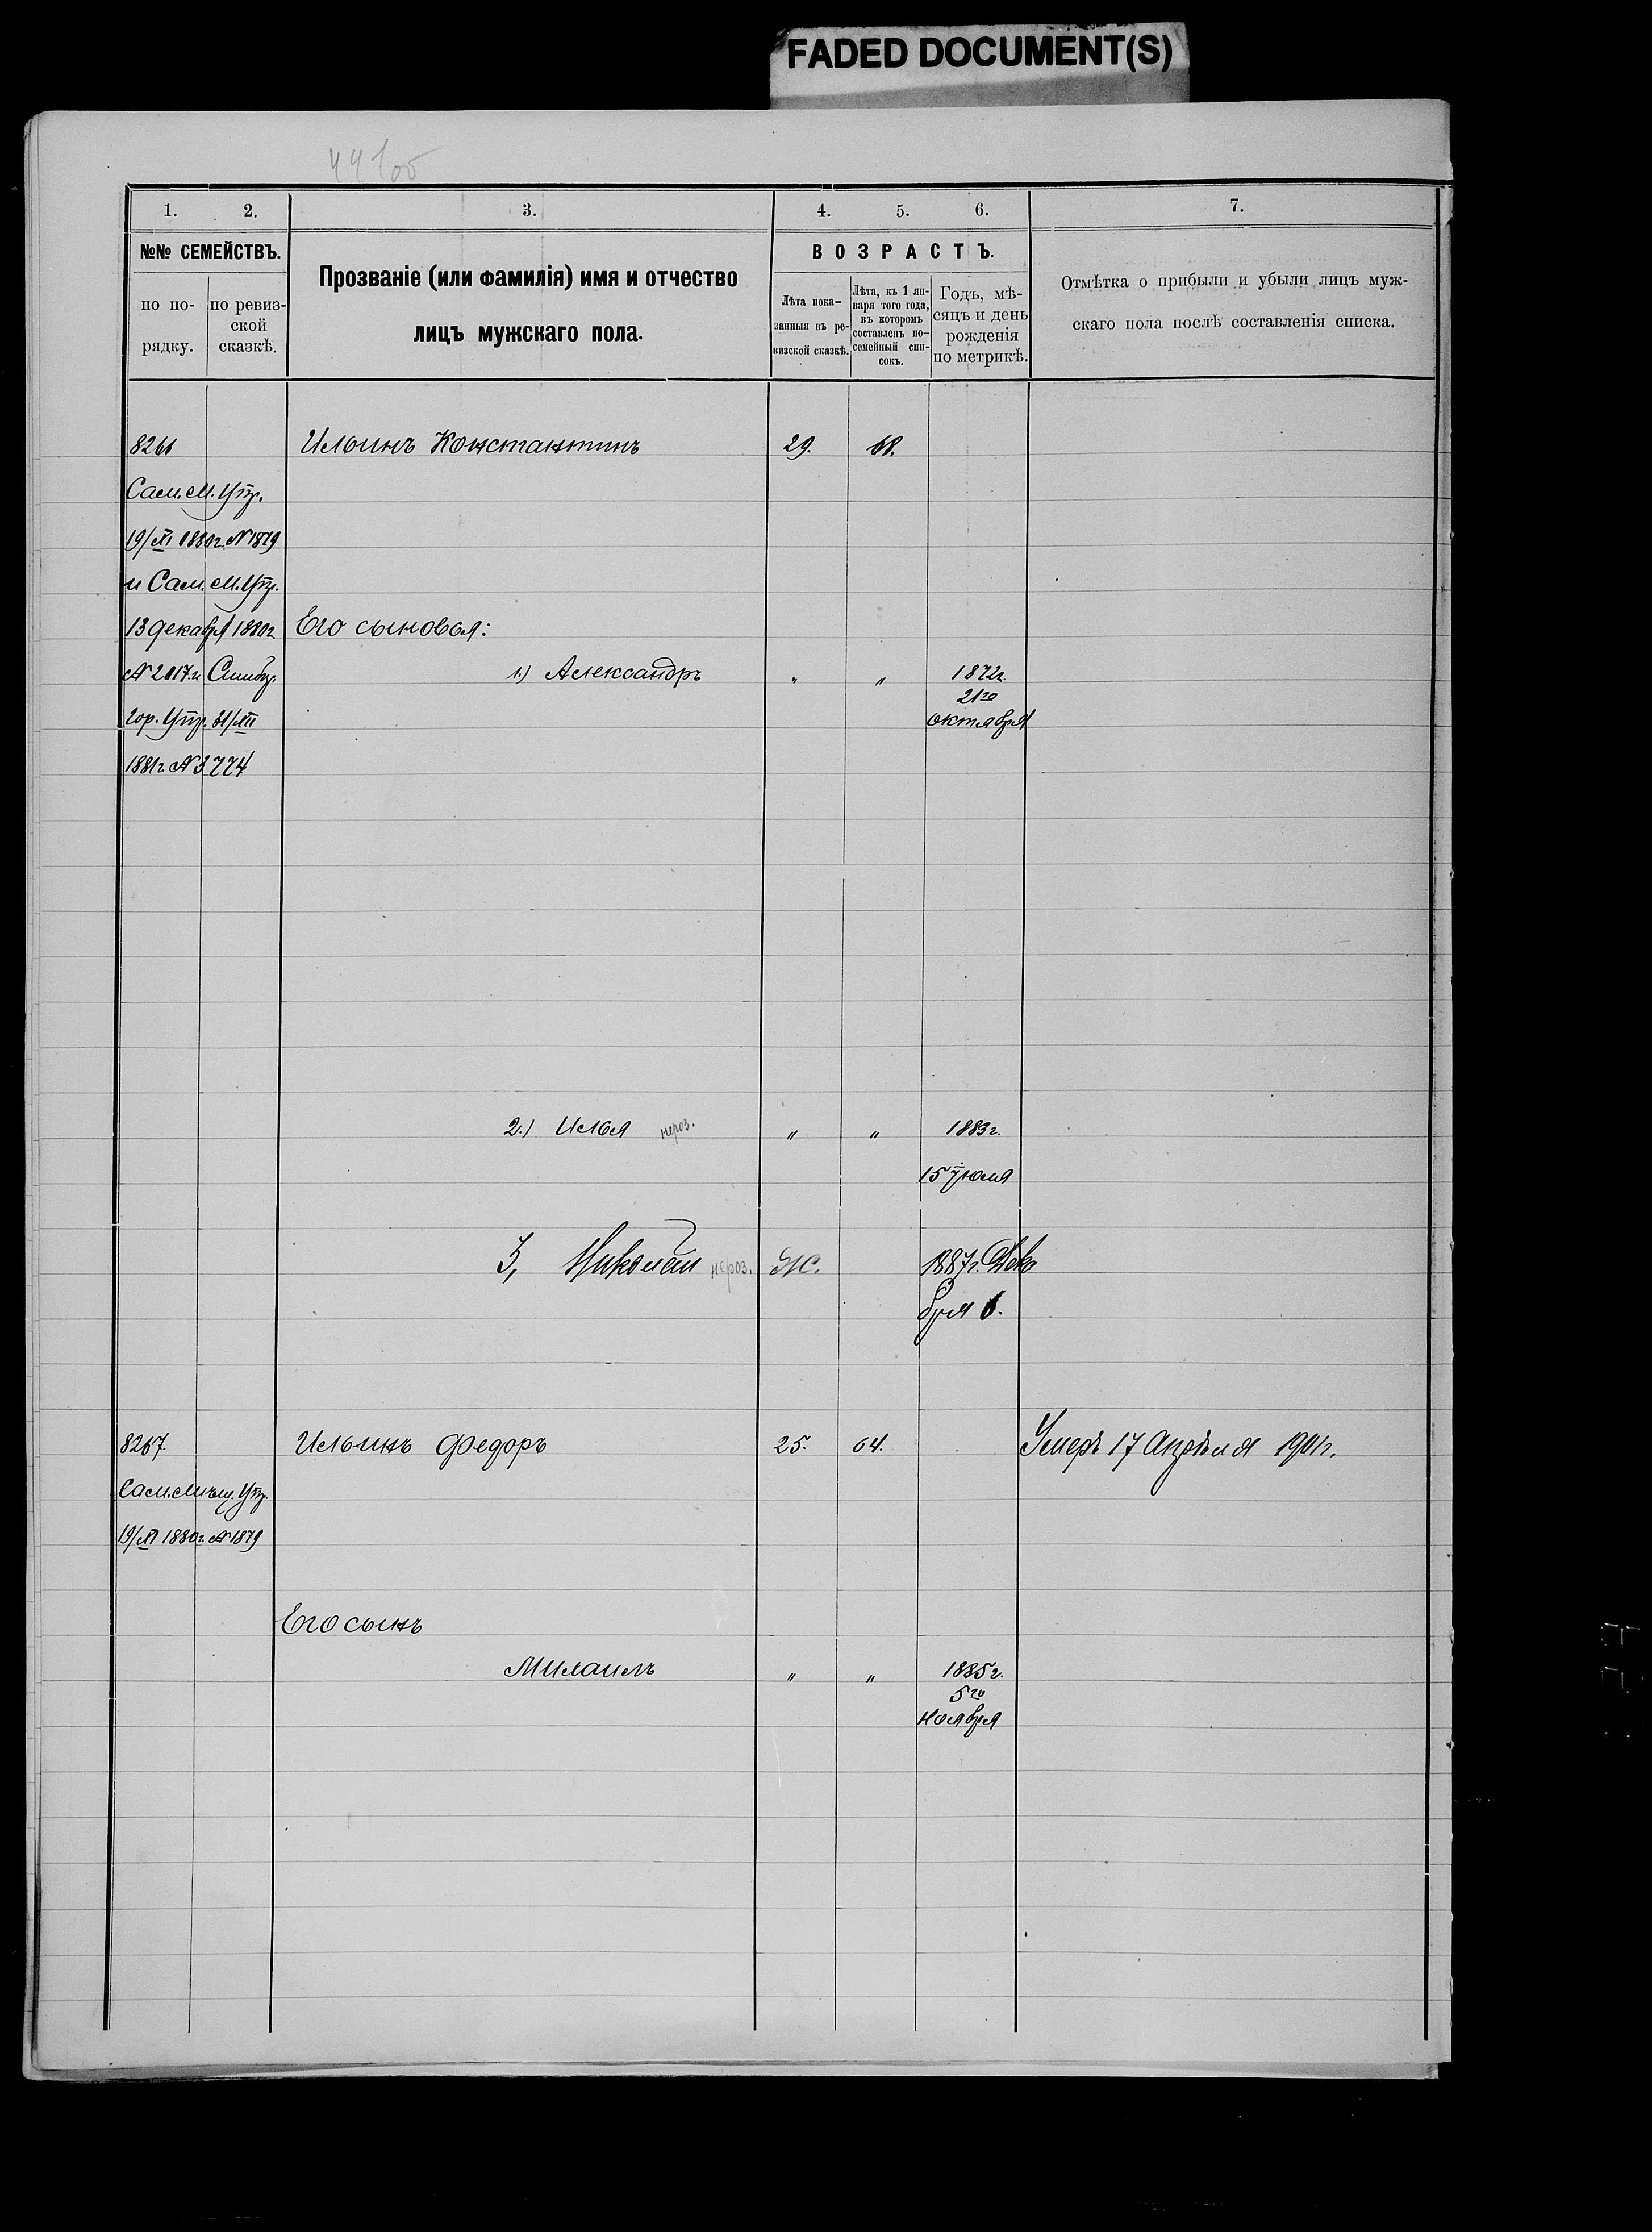 FADED DOCUMENT(S)
441об
1. 2. 3. 4. 5. 6. 7.
№№ СЕМЕЙСТВЪ.
по по-
рядку.
по ревиз-
ской
сказкѣ.
Прозваніе (или фамилія) имя и отчество
лицъ мужскаго пола.
ВОЗРАСТЪ.
Лѣта пока-
занныя въ ре-
визской сказкѣ.
Лѣта, къ 1 ян-
варя того года,
въ которомъ
составленъ по-
семейный спи-
сокъ.
Годъ, мѣ-
сяцъ и день
рожденія
по метрикѣ.
Отмѣтка о прибыли и убыли лицъ муж-
скаго пола послѣ составленія списка.
8266 Ильинъ Константинъ 29. 68.
Сам. М. Упр.
19/XI 1880г. №1879
и Сам. М. Упр.
13 декабря 1880г. Его сыновья:
№2017 и Симбир. 1.) Александръ " " 1872г.
21го
Гор. Упр. 31/XII октября
1881г. №3774
2.) Илья нероз. " " 1883г.
15 Іюля
3, Николай нероз. 1887г. Дека
бря 6.
8267. Ильинъ Федоръ 25. 64. Умеръ 17 Апрѣля 1901г.
Сам. Мѣщ. Упр.
19/XI 1880г. №1879
Его сынъ
Михаилъ " " 1885г.
5го
ноября